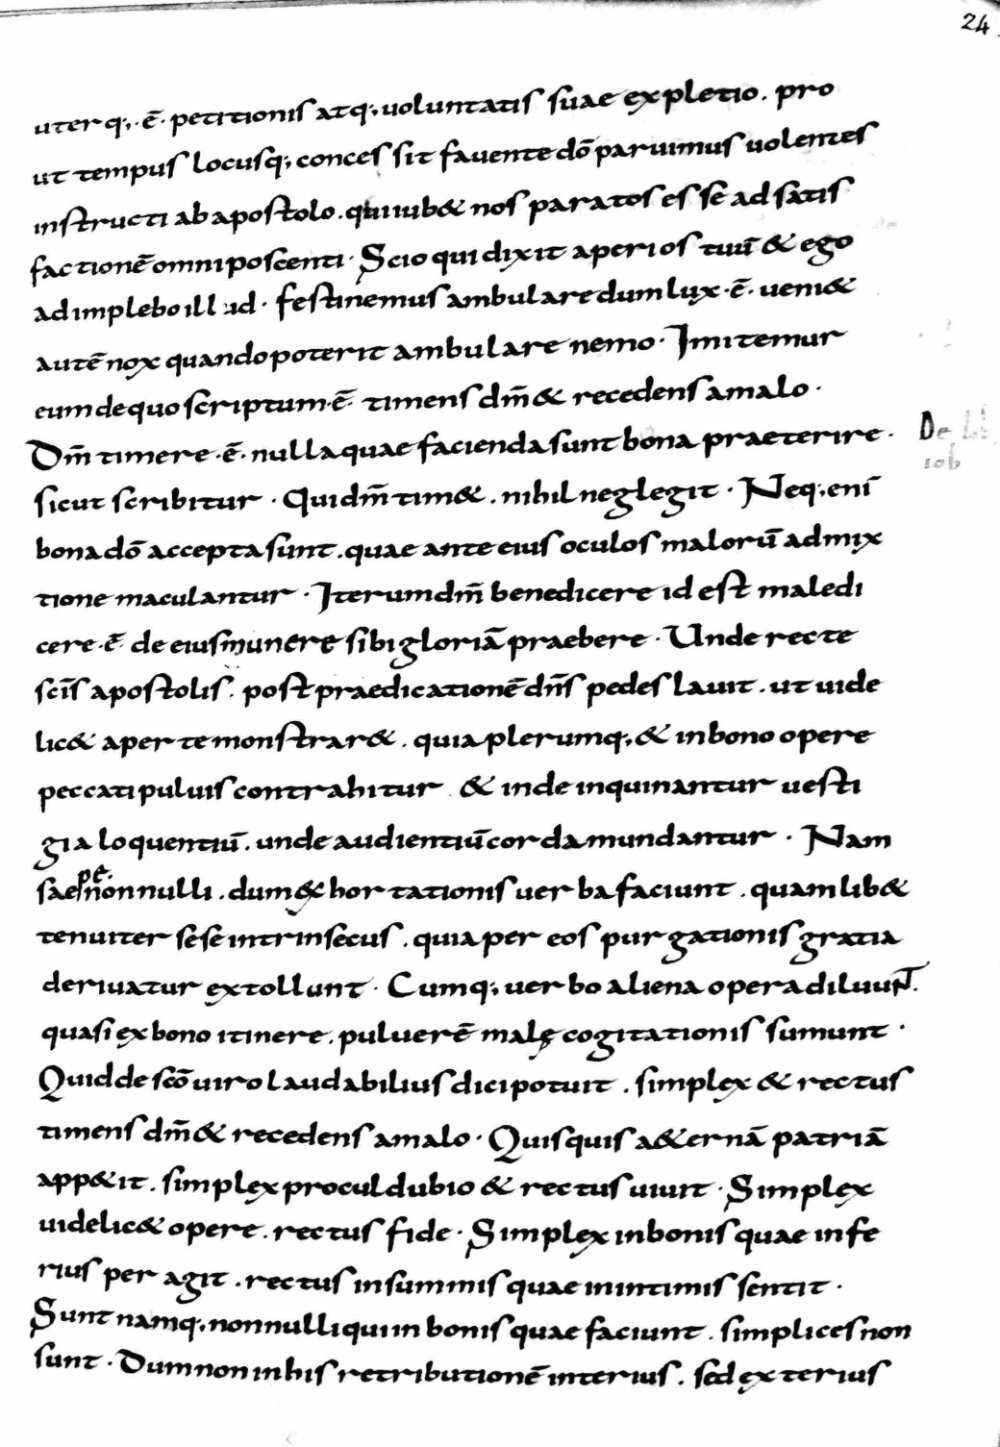 24
uterq;. ē. petitionis atq; uoluntatis suae expletio. pro
ut tempus locusq; conces sit fauente dō paruimus uolentes
instructi ab apostolo. qui iub& nos paratos esse ad satis
factionē omni poscenti. Scio qui dixit aperi os tuū & ego
adimplebo illud. festinemus ambulare dum lux. ē. ueni&
autē nox quando poterit ambulare nemo. Imitemur
eum de quo scriptum. ē. timens dm̄ & recedens a malo.
Dm̄ timere. ē. nulla quae facienda sunt bona praeterire.
De
iob
sicut scribitur. Qui dm̄ tim&. nihil neglegit. Neq; enī
bona dō accepta sunt. quae ante eius oculos malorū admix
tione maculantur. Iterum dm̄ benedicere id est maledi
cere. ē. de eius munere sibi gloriā praebere. Unde recte
scīs apostolis. post praedicationē dn̄s pedes lauit. ut uide
lic& aperte monstrar&. quia plerumq; & in bono opere
peccati puluis contrahitur. & inde inquinantur uesti
gia loquentiū. unde audientiū corda mundantur. Nam
pe.
saes nonnulli. dum exhortationis uerba faciunt. quamlib&
tenuiter sese intrinsecus. quia per eos purgationis gratia
deriuatur extollunt. Cumq; uerbo aliena opera diluuNT.
quasi ex bono itinere. puluerē malę cogitationis sumunt.
Quid de scō uiro laudabilius dici potuit. simplex & rectus
timens dm̄ & recedens a malo. Quisquis a&ernā patriā
app&it. simplex procul dubio & rectus uiuit. Simplex
uidelic& opere. rectus fide. Simplex in bonis quae infe
rius peragit. rectus in summis quae in intimis sentit.
Sunt namq; nonnulli qui in bonis quae faciunt. simplices non
sunt. Dum non in his retributionē interius. sed exterius